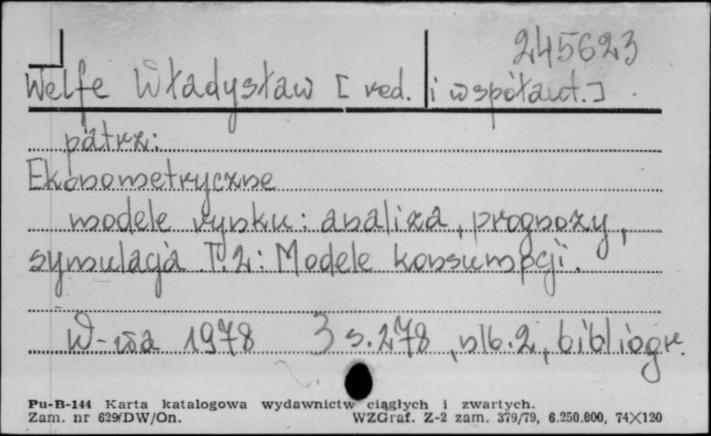 245623
Welfe Władysław [red. i współaut.]
patrz:
Ekonometryczne
modele rynku: analiza, prognozy,
symulacja. T. 2: Modele konsumpcji.
W-wa 1978 3 s. 278, nlb. 2, bibliogr.
Pu-B-144 Karta katalogowa wydawnictw ciągłych i zwartych.
Zam. nr 629/DW/On. WZGraf. Z-2 zam. 379/79, 6.250.000, 74×120